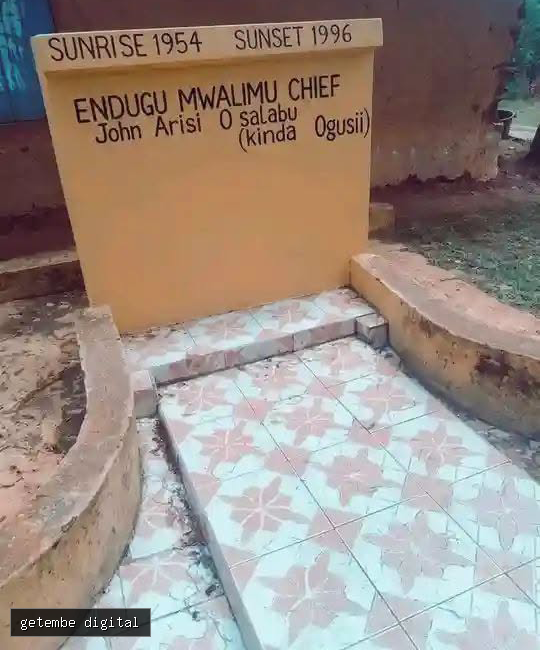 SUNRISE 1954 SUNSET 1996
ENDUGU MWALIMU CHIEF
John Arisi O salabu
(kinda Ogusii)
getembe digital